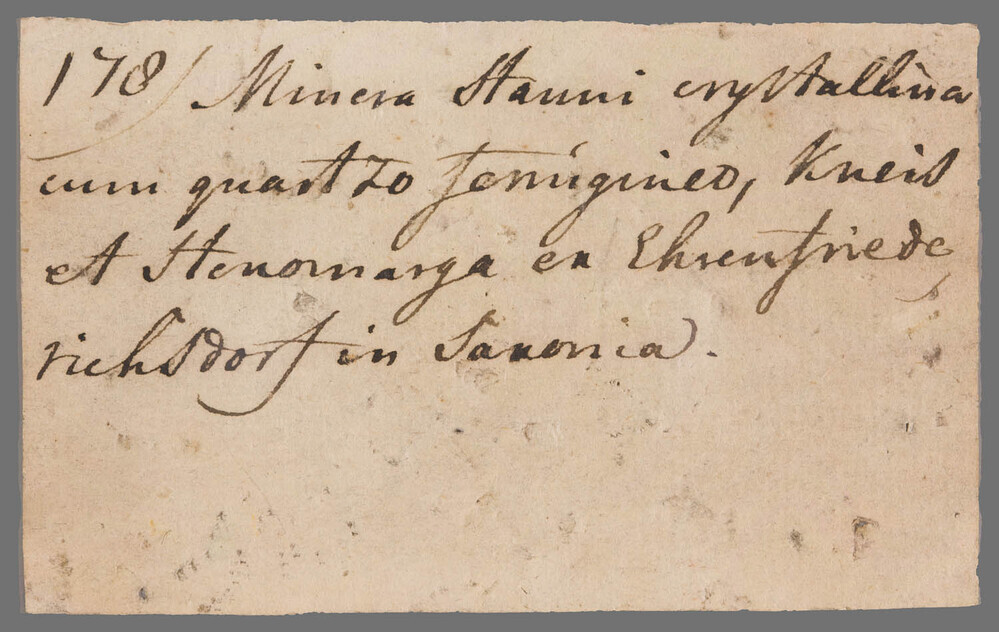 178) Minera Stanni crystallina
cum quartzo ferrugineo, Kneis
et Stenomarga ex Ehrenfriede,
richsdorf in Saxonia.